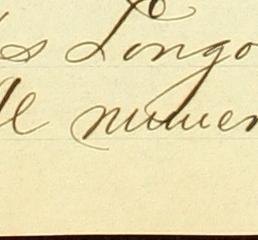 s Longo
l numer